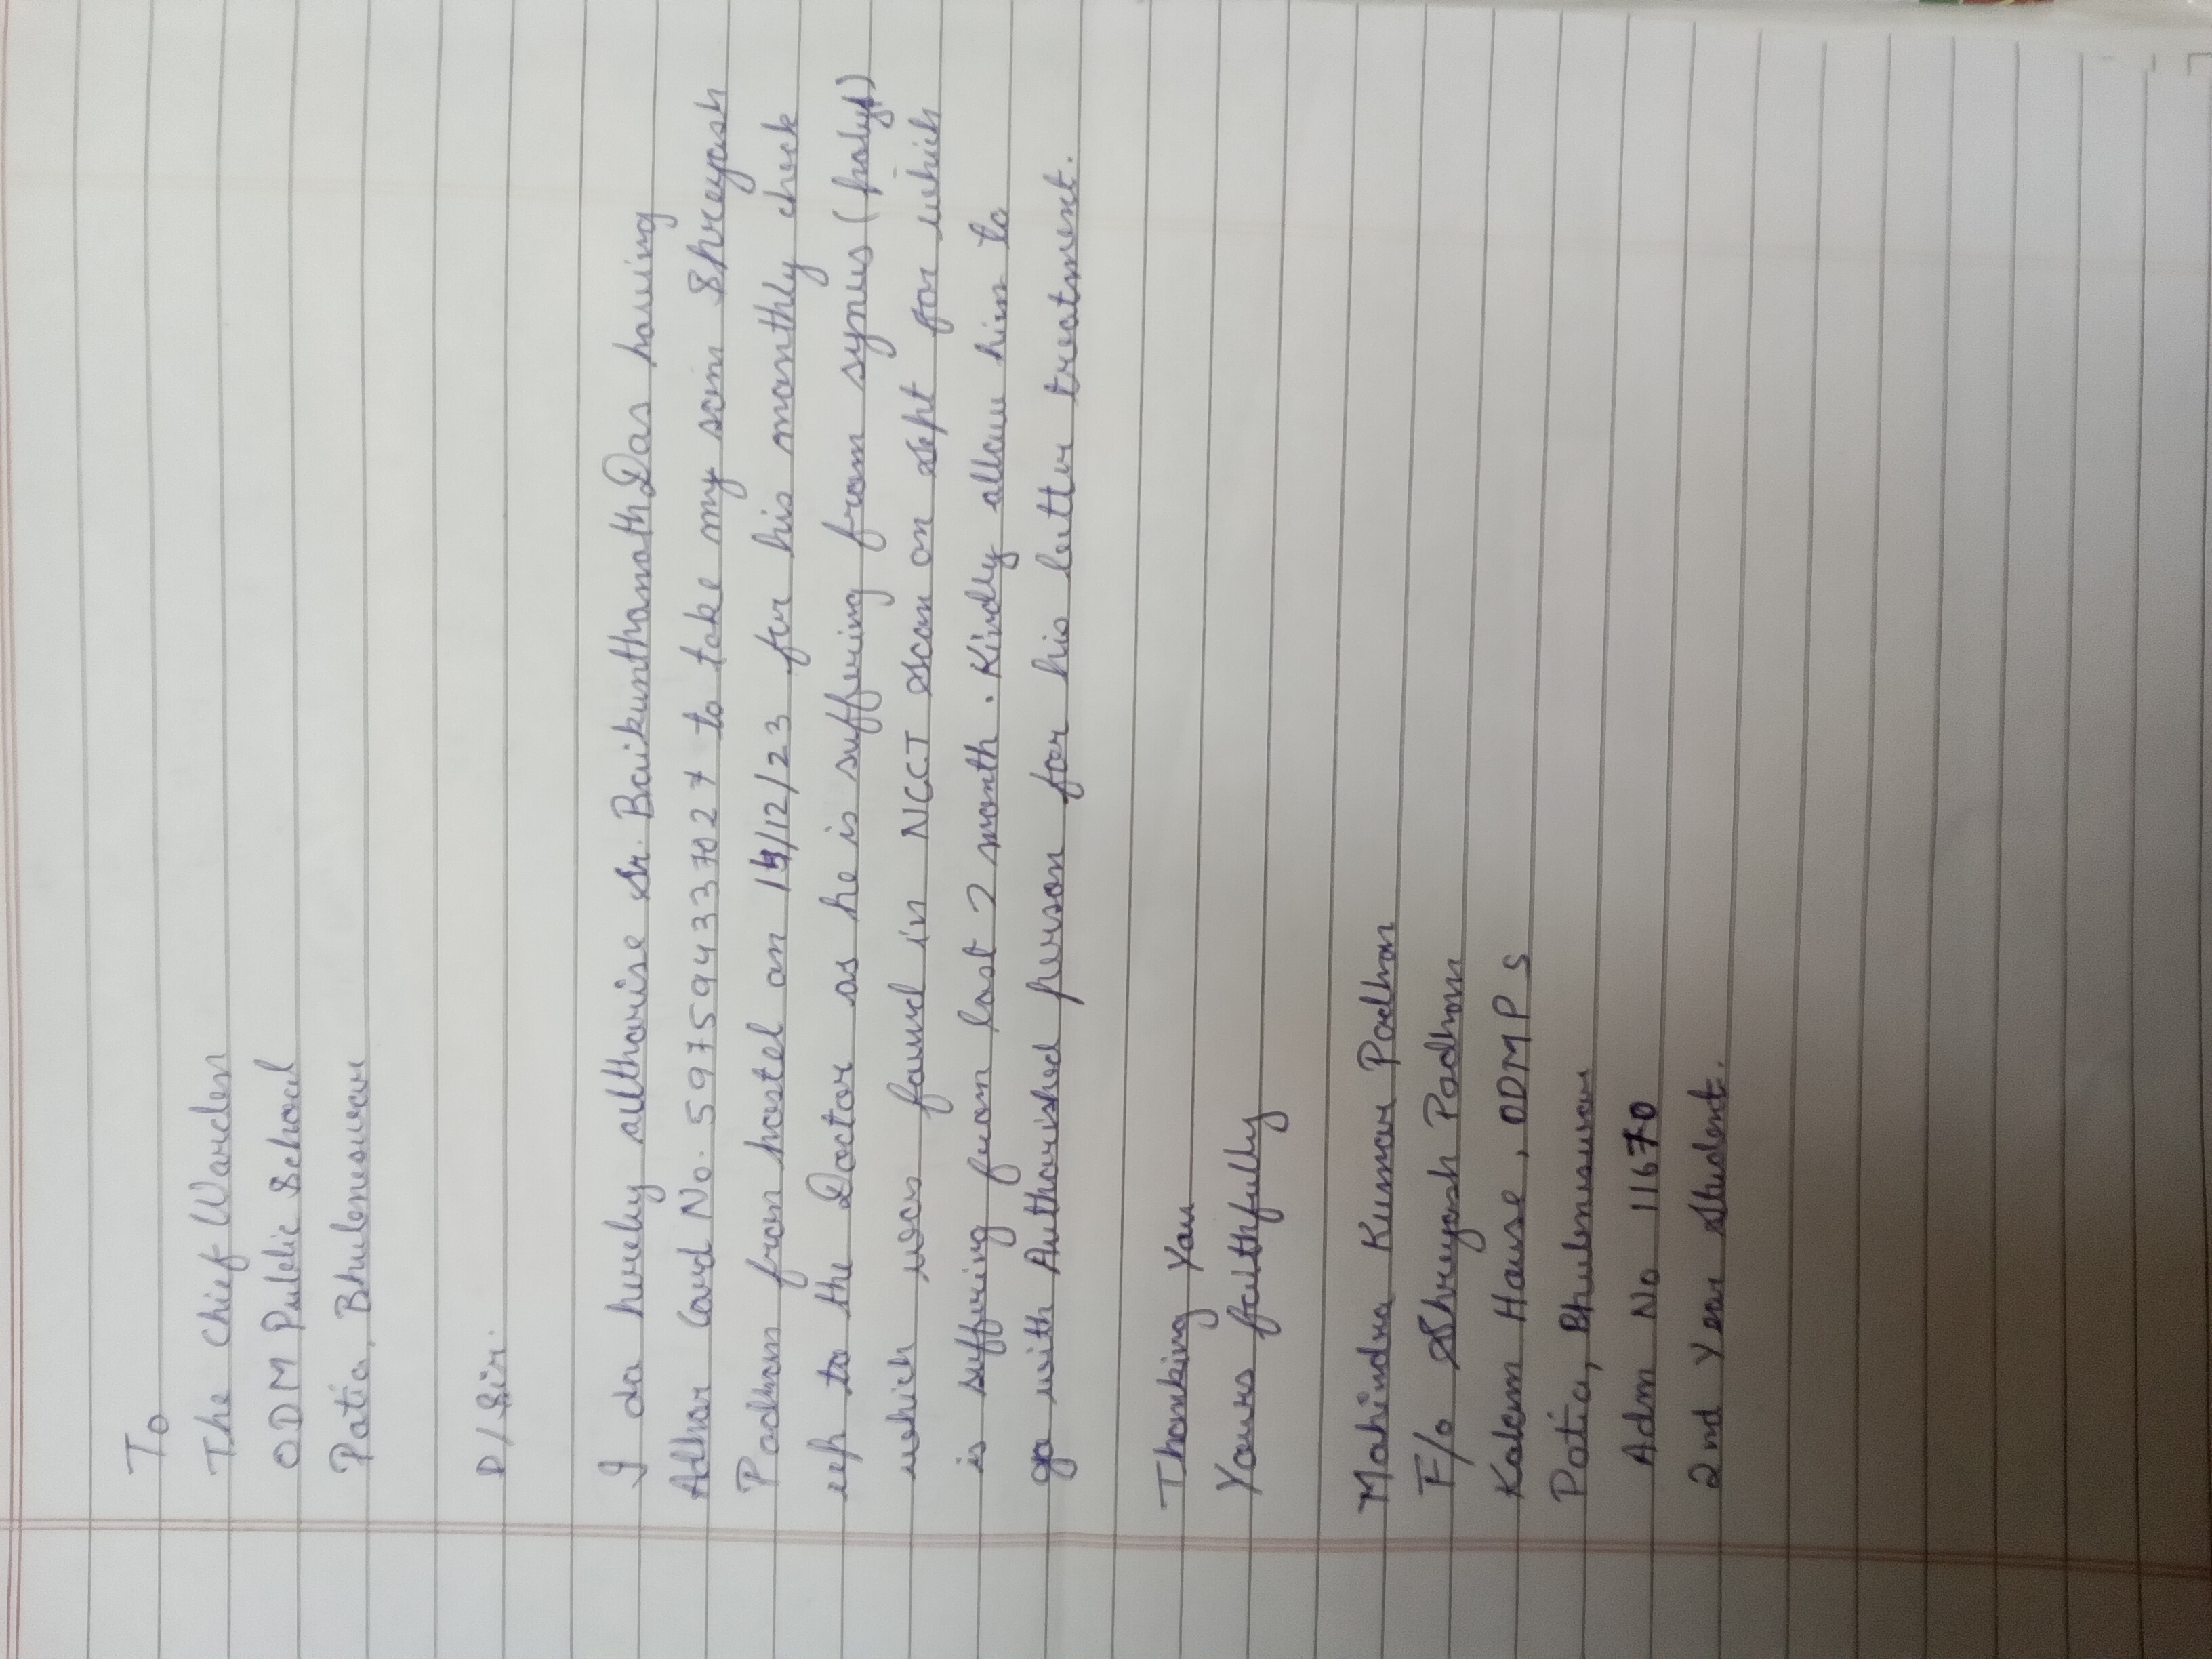 To
The Chief Warden
ODM Public School
Patia, Bhubneswar
D/Sir.
I do hereby authorise Sr. Baikunthanath Das having
Adhar Card No. 597594337027 to take my son Shreyash
Padhan from hostel on /12/23 for his monthly check
up to the Doctor as he is suffering from synus (polyp)
which was found in NCCT scan on sept for which
is suffring from last 2 month. Kindly allow him to
go with Authorished person for his better treatment.
Thanking You
Yours faithfully
Mahindra Kumar Padhan
F/o Shreyash Padhan
Kalam House, ODMPS
Patia, Bhubneswar
Adm No 11670
2nd Year Student.